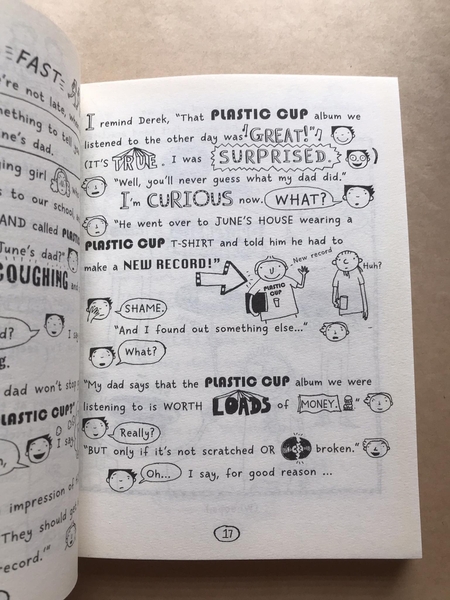 FAST
're not late, wh
omething to tell yo
ne's dad.
ging girl
s to our school,
AND called PLAS
June's dad?"
COUGHING and
d?
I sa
g.
dad won't stop
PLASTIC CUP!"
I say
n,
impression of
They should get
record.'"
I remind Derek, "That PLASTIC CUP album we
listened to the other day was GREAT!"
(IT'S TRUE. I was SURPRISED.)
"Well, you'll never guess what my dad did."
I'm CURIOUS now. WHAT?
"He went over to JUNE'S HOUSE wearing a
PLASTIC CUP T-SHIRT and told him he had to
make a NEW RECORD!"
New record
Huh?
PLASTIC
CUP
SHAME.
"And I found out something else..."
What?
"My dad says that the PLASTIC CUP album we were
listening to is WORTH LOADS of MONEY."
Really?
"BUT only if it's not scratched OR broken."
Oh... I say, for good reason ...
17